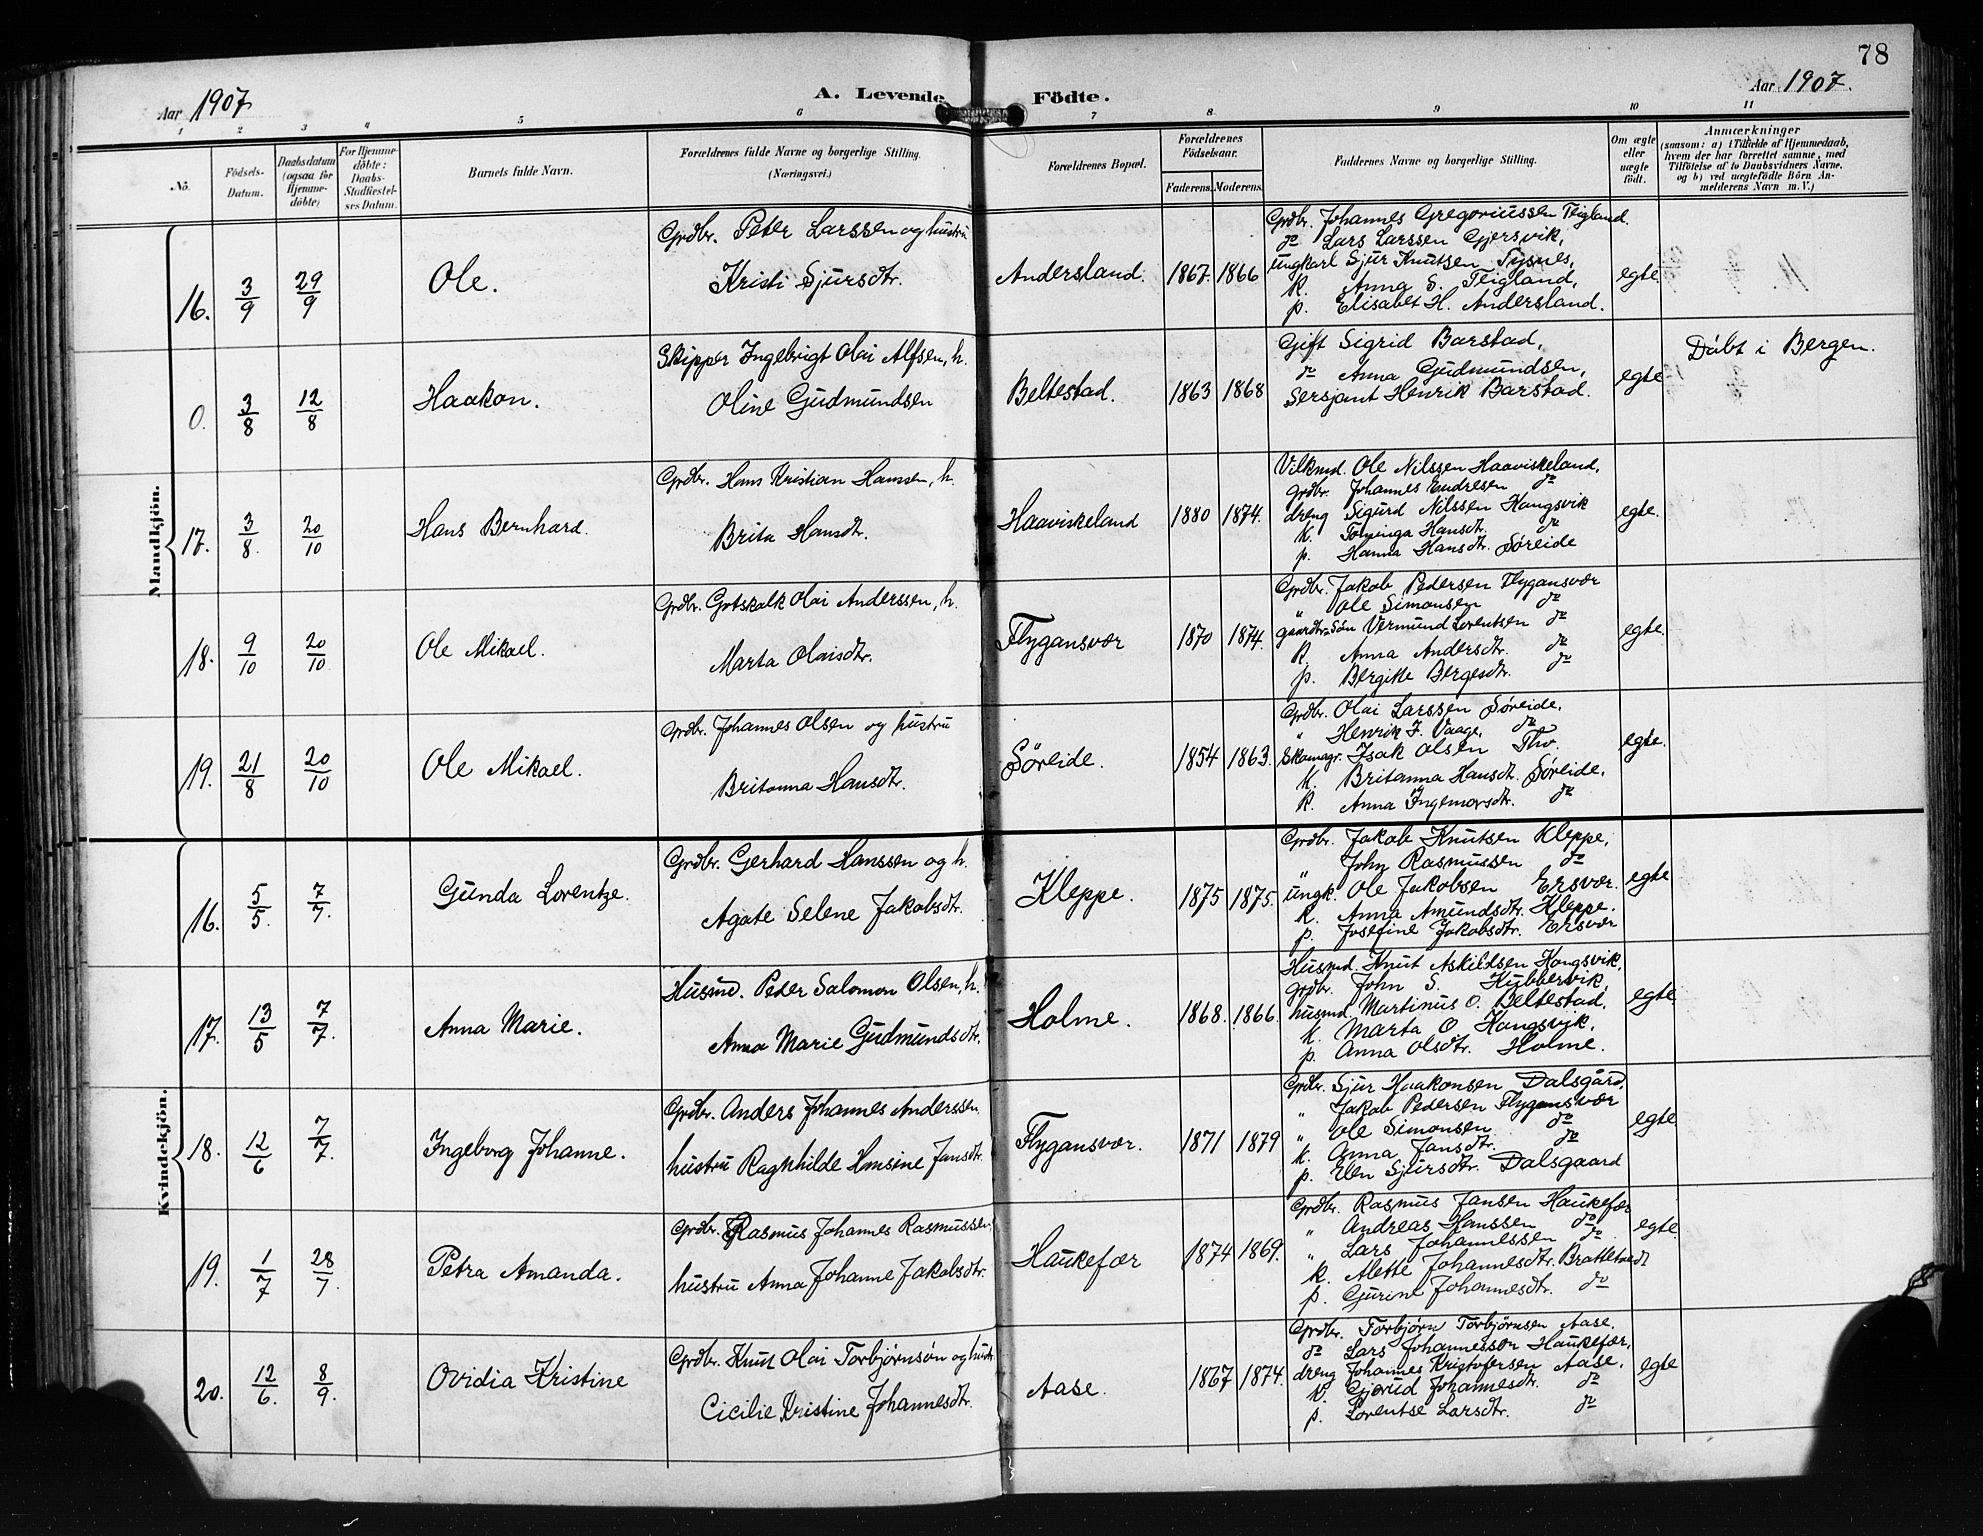 78
Aar 1907
A. Levende Födte.
Aar 1907.
1 2 3 4 5 6 7 8 9 10 11
No.
Födsels-Datum.
Daabsdatum (ogsaa for Hjemmedöbte)
For Hjemmedöbte: Daabs-Stadfestelses Datum.
Barnets fulde Navn.
Forældrenes fulde Navne og borgerlige Stilling. (Næringsvei.)
Forældrenes Bopæl.
Forældrenes Födselsaar.
Faderens. Moderens.
Faddernes Navne og borgerlige Stilling.
Om ægte eller uægte födt.
Anmærkninger
(saasom: a) i Tilfælde af Hjemmedaab,
hvem der har forrettet samme, med
Tilföielse af to Daabsvidners Navne.
og b) ved uægtefödte Börn An-
melderens Navn m. V.)
Mandkjön.
16. 3/9 29/9 Ole.
Grdbr. Peter Larssen og hustru
Kristi Sjursdtr.
Andersland. 1867. 1866
Grdbr. Johannes Gregoriussen Teigland.
do Lars Larssen Gjersvik,
ungkarl Sjur Knutsen Tysnes,
k. Anna S. Teigland,
p. Elisabet H. Andersland.
egte.
0. 3/8 12/8 Haakon.
Skipper Ingebrigt Olai Alfsen, h.
Oline Gudmundsen
Beltestad. 1863 1868
Gift Sigrid Barstad,
do Anna Gudmundsen,
Sersjant Henrik Barstad.
egte
Döbt i Bergen.
17. 3/8. 20/10 Hans Bernhard.
Grdbr. Hans Kristian Hanssen, h.
Brita Hansdtr.
Haaviskeland 1880 1874.
Vilkmd. Ole Nilssen Haaviskeland,
grdbr. Johannes Endresen do
dreng Sigurd Nilssen Hangsvik
k. Hansdtr. do
p. Hanna Hansdtr. Söreide
egte.
18. 9/10 20/10 Ole Mikael.
Grdbr. Gotskalk Olai Anderssen, h.
Marta Olaisdtr.
Flygansvær 1870 1874.
Grdbr. Jakob Pedersen Flygansvær
" Ole Simonsen do
gaardbr.sön Vermund Lorentsen do
k. Anna Andersdtr. do
p. Bergitte Bergesdtr. do
egte.
19. 21/8 20/10 Ole Mikael.
Grdbr. Johannes Olsen og hustru
Britanna Hansdtr.
Söreide. 1854 1863.
Grdbr. Olai Larssen Söreide,
" Henrik J. Vaage, do
Skomagr. Isak Olsen Thv.
k. Britanna Hansdt. Söreide,
k. Anna Ingemarsdtr. do
egte.
Kvindekjön.
16. 5/5. 7/7. Gunda Lorentze.
Grdbr. Gerhard Hanssen og h.
Agate Selene Jakobsdtr.
Kleppe. 1875 1875.
Grdbr. Jakob Knutsen Kleppe,
" John Rasmussen do
ungk. Ole Jakobsen Ersvær.
k. Anna Amundsdtr. Kleppe.
p. Josefine Jakobsdtr. Ersvær
egte
17. 13/5 7/7. Anna Marie.
Husmd. Peder Salomon Olsen, h.
Anna Marie Gudmundsdtr.
Holme. 1868. 1866.
Husmd. Knut Askildsen Hangsvik,
grdbr. John S. Hubbervik,
husmd. Martinus O. Beltestad,
k. Marta O. Hangsvik,
p. Anna Olsdtr. Holme.
egte
18. 12/6 7/7. Ingeborg Johanne.
Grdbr. Anders Johannes Anderssen,
hustru Ragnhilde Hansine Jansdtr.
Flygansvær. 1871 1879
Grdbr. Sjur Haakonsen Dalsgård,
" Jakob Pedersen Flygansvær
" Ole Simonsen do
k. Anna Jansdtr. do
p. Elen Sjursdtr. Dalsgaard
egte
19. 1/7 28/7. Petra Amanda.
Grdbr. Rasmus Johannes Rasmussen,
hustru Anna Johanne Jakobsdtr.
Haukefær 1874 1869.
Grdbr. Rasmus Jansen Haukefær
" Andreas Hanssen do
" Lars Johannessen do
k. Alette Johannesdtr. Brattetveit
p. Gurine Johannesdtr. do
egte.
20. 12/6. 8/9. Ovidia Kristine
Grdbr. Knut Olai Torbjörnsön og hustr.
Cicilie Kristine Johannesdtr.
Aase. 1867 1874.
Grdbr. Torbjörn Torbjörnsen Aase,
do Lars Johannessön Haukefær,
dreng Johannes Kristofersen Aase,
k. Gjerud Johannesdtr. do
p. Lorentse Larsdtr. do
egte